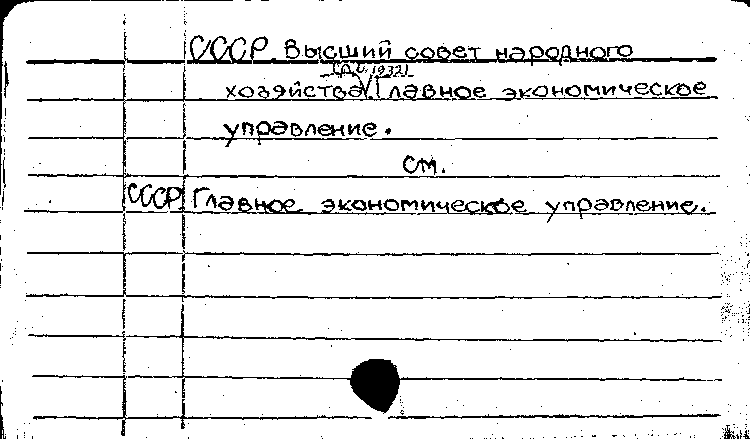 СССР. Высший совет народного
1932)
хозяйства. Главное экономическое
управление.
см.
СССР. Главное экономическое управление.